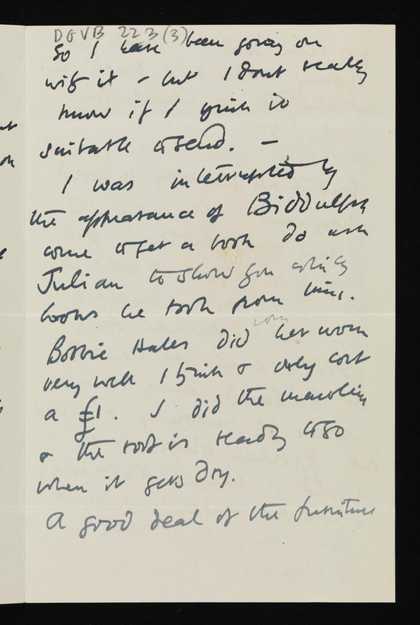 DGVB 223(3)
So I have been going on
with it - but I dont really
know if I think it
suitable to send. -
I was interrupted by
the appearance of Biddulph
come to get a book do ask
Julian to show you which
books he took from him.
Bobbie Hales did her work
very well I think & only cost
a £1. I did the
& the rest is ready to go
when it gets dry.
A good deal of the furniture